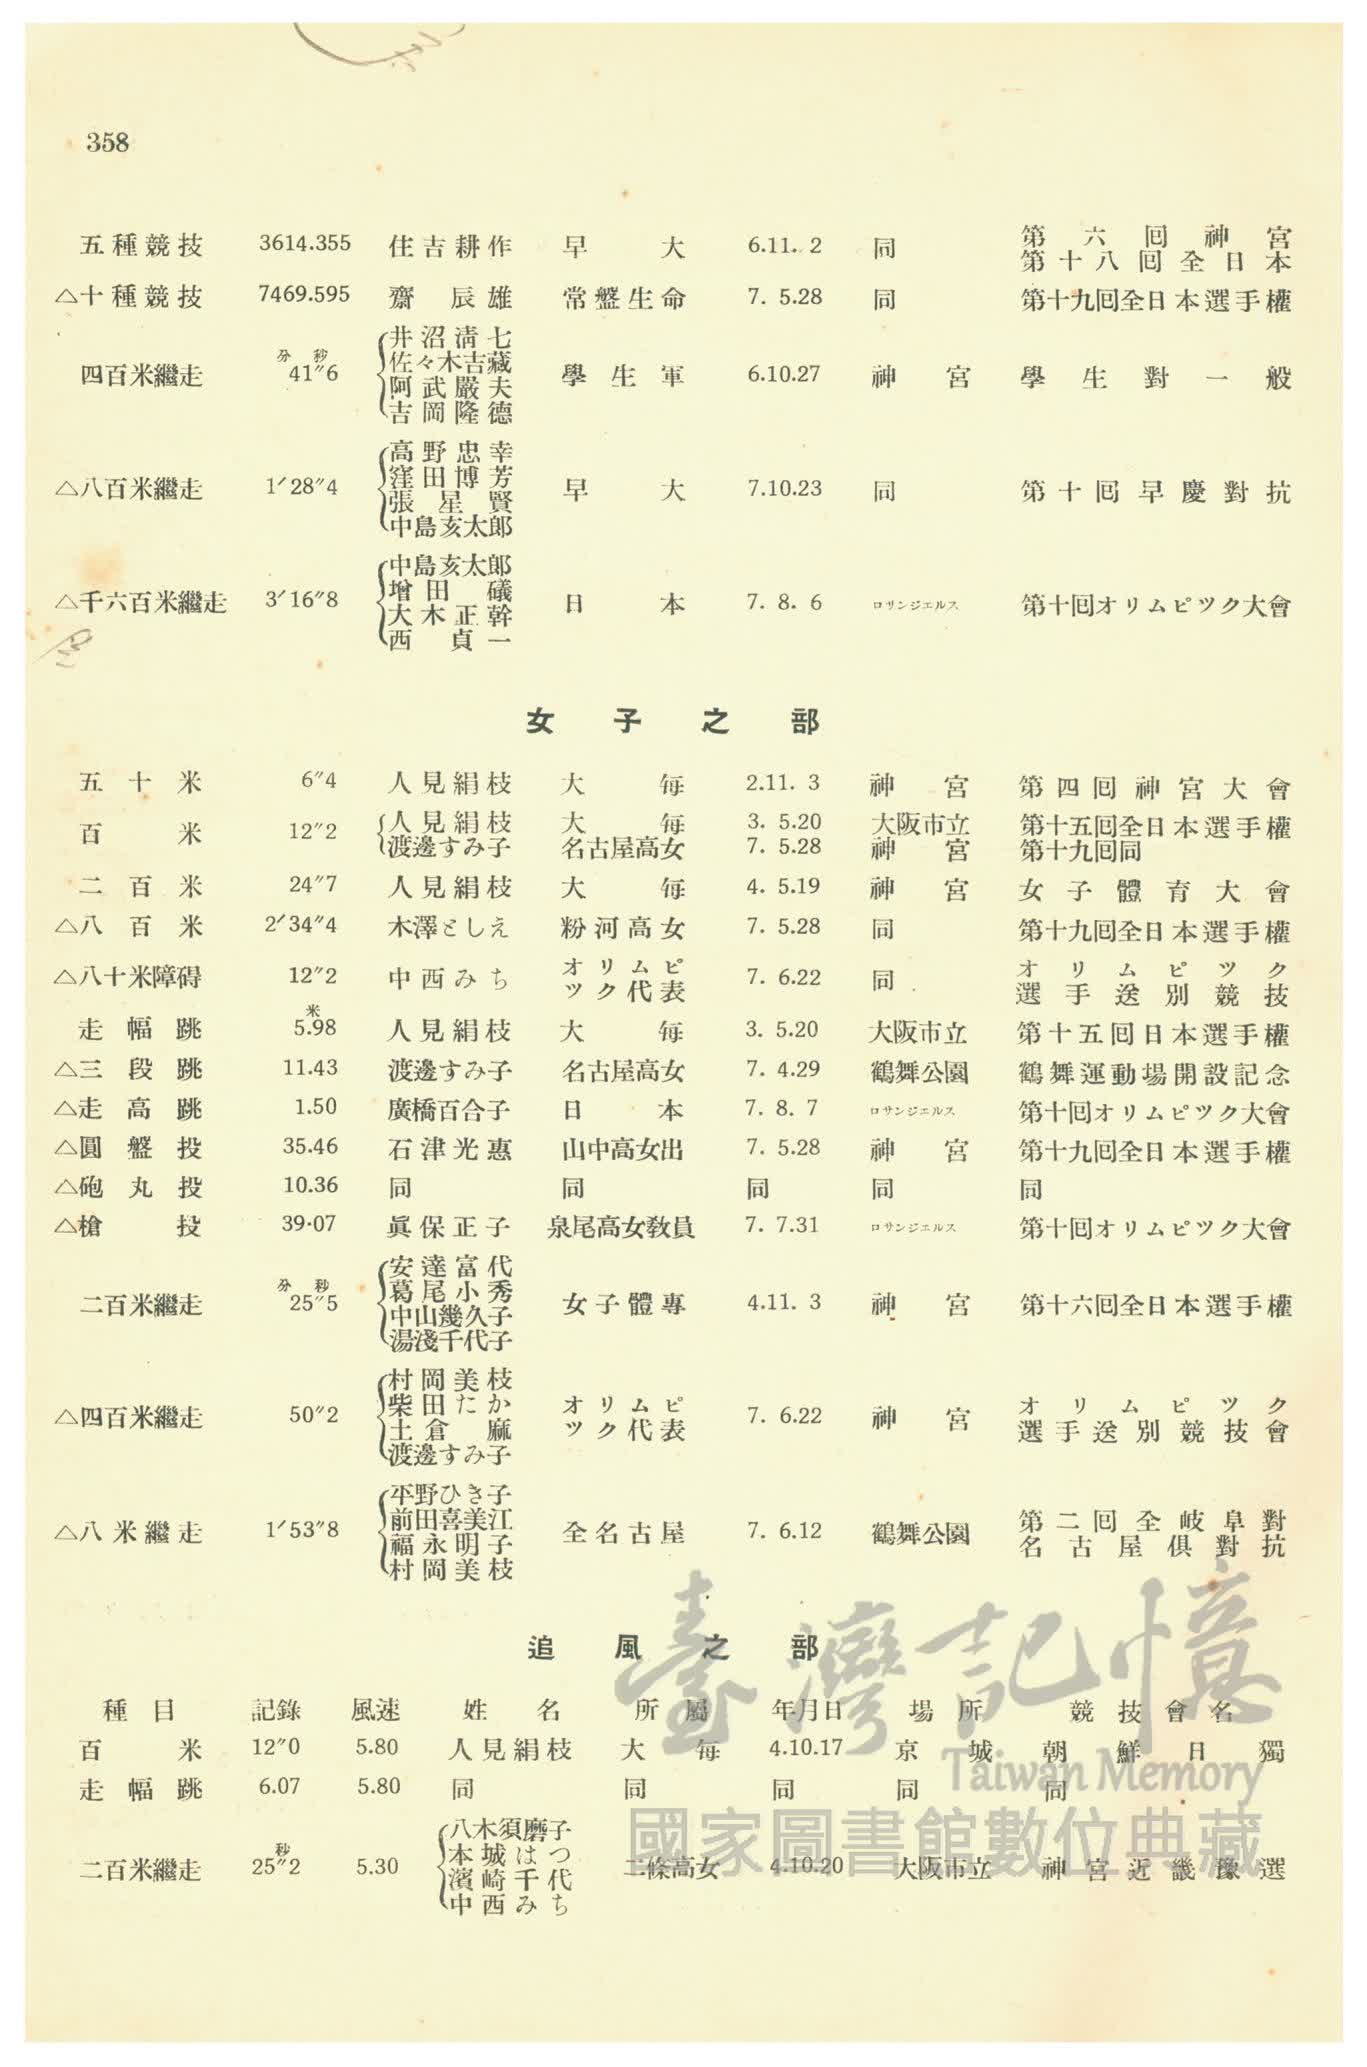 358
五種競技 3614.355 住吉耕作 早大 6.11. 2 同 第六回神宮
第十八回全日本
△十種競技 7469.595 齋辰雄 常盤生命 7. 5.28 同 第十九回全日本選手權
井沼淸七
佐々木吉藏
四百米繼走 分秒 41″6 學生軍 6.10.27 神宮 學生對一般
阿武嚴夫
吉岡隆德
高野忠幸
窪田博芳
△八百米繼走 1′28″4 早大 7.10.23 同 第十回早慶對抗
張星賢
中島亥太郎
中島亥太郎
增田礒
△千六百米繼走 3′16″8 日本 7. 8. 6 ロサンジエルス 第十回オリムピツク大會
大木正幹
西貞一
女子之部
五十米 6″4 人見絹枝 大每 2.11. 3 神宮 第四回神宮大會
百米 12″2 人見絹枝 大每 3. 5.20 大阪市立 第十五回全日本選手權
渡邊すみ子 名古屋高女 7. 5.28 神宮 第十九回同
二百米 24″7 人見絹枝 大每 4. 5.19 神宮 女子體育大會
△八百米 2′34″4 木澤としえ 粉河高女 7. 5.28 同 第十九回全日本選手權
△八十米障碍 12″2 中西みち オリムピツク代表 7. 6.22 同 オリムピツク
選手送別競技
走幅跳 米 5.98 人見絹枝 大每 3. 5.20 大阪市立 第十五回日本選手權
△三段跳 11.43 渡邊すみ子 名古屋高女 7. 4.29 鶴舞公園 鶴舞運動場開設記念
△走高跳 1.50 廣橋百合子 日本 7. 8. 7 ロサンジエルス 第十回オリムピツク大會
△圓盤投 35.46 石津光惠 山中高女出 7. 5.28 神宮 第十九回全日本選手權
△砲丸投 10.36 同 同 同 同 同
△槍投 39·07 眞保正子 泉尾高女敎員 7. 7.31 ロサンジエルス 第十回オリムピツク大會
安達富代
葛尾小秀
二百米繼走 分秒 25″5 女子體專 4.11. 3 神宮 第十六回全日本選手權
中山幾久子
湯淺千代子
村岡美枝
柴田たか
△四百米繼走 50″2 オリムピツク代表 7. 6.22 神宮 オリムピツク
選手送別競技會
土倉麻
渡邊すみ子
平野ひき子
前田喜美江
△八米繼走 1′53″8 全名古屋 7. 6.12 鶴舞公園 第二回全岐阜對
名古屋俱對抗
福永明子
村岡美枝
追風之部
種目 記錄 風速 姓名 所屬 年月日 場所 競技會名
百米 12″0 5.80 人見絹枝 大每 4.10.17 京城 朝鮮日獨
走幅跳 6.07 5.80 同 同 同 同 同
八木須磨子
本城はつ
二百米繼走 秒 25″2 5.30 二條高女 4.10.20 大阪市立 神宮近畿豫選
濱崎千代
中西みち
臺灣記憶
Taiwan Memory
國家圖書館數位典藏